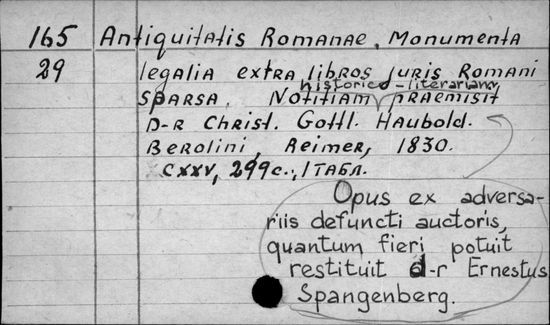 165 Antiquitatis Romanae, Monumenta
29 legalia extra libros juris Romani
historico-literariam
sparsa. Notitiam praemisit
D-r Christ. Gottl. Haubold.
Berolini, Reimer, 1830.
CXXV, 299 c., 1 табл.
Opus ex adversa-
riis defuncti auctoris,
quantum fieri potuit
restituit d-r Ernestus
Spangenberg.